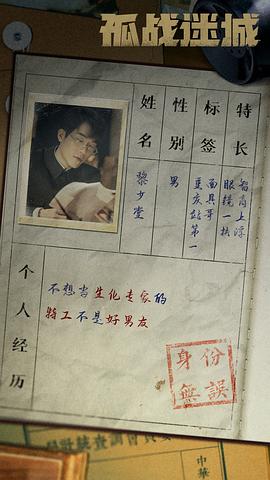 孤战迷城
姓名
性别
标签
特长
黎少堂
男
重庆站第一
面具哥
眼镜一扶
智商上浮
个人经历
不想当生化专家的
特工不是好男友
身份
無誤
中華